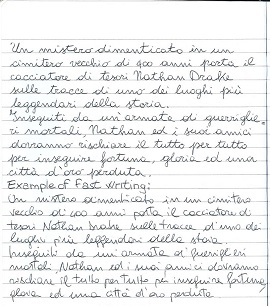 Un mistero dimenticato in un
cimitero vecchio di 400 anni porta il
cacciatore di tesori Nathan Drake
sulle tracce di uno dei luoghi più
leggendari della storia.
Inseguiti da un'armata di guerriglie=
ri mortali, Nathan ed i suoi amici
dovranno rischiare il tutto per tutto
per inseguire fortuna, gloria ed una
città d'oro perduta.
Example of Fast Writing:
Un mistero dimenticato in un cimitero
vecchio di 400 anni porta il cacciatore di
tesori Nathan Drake sulle tracce di uno dei
luoghi più leggendari della storia
Inseguiti da un'armata di guerriglieri
mortali Nathan ed i suoi amici dovranno
rischiare il tutto per tutto per inseguire fortuna,
gloria ed una città d'oro perduta